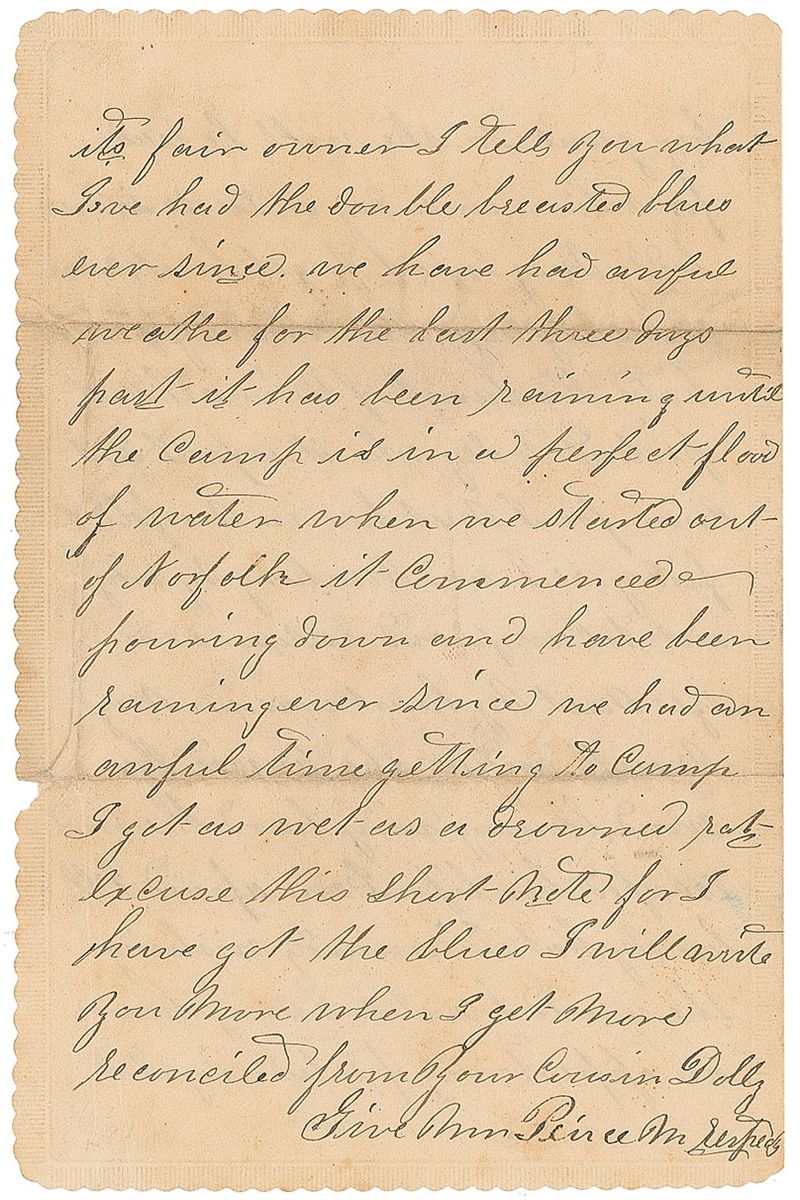 its fair owner I tells you what
I've had the double breasted blues
ever since. we have had awful
weathe for the last three days
past it has been raining until
the Camp is in a perfect flood
of water when we started out
of Norfolk it Commenced
pouring down and have been
raining ever since we had an
awful time getting to Camp
I got as wet as a drowned rat
excuse this short Note for I
have got the blues I will write
you More when I get More
reconciled from Your Cousin Dolly
Give Peirce M respects